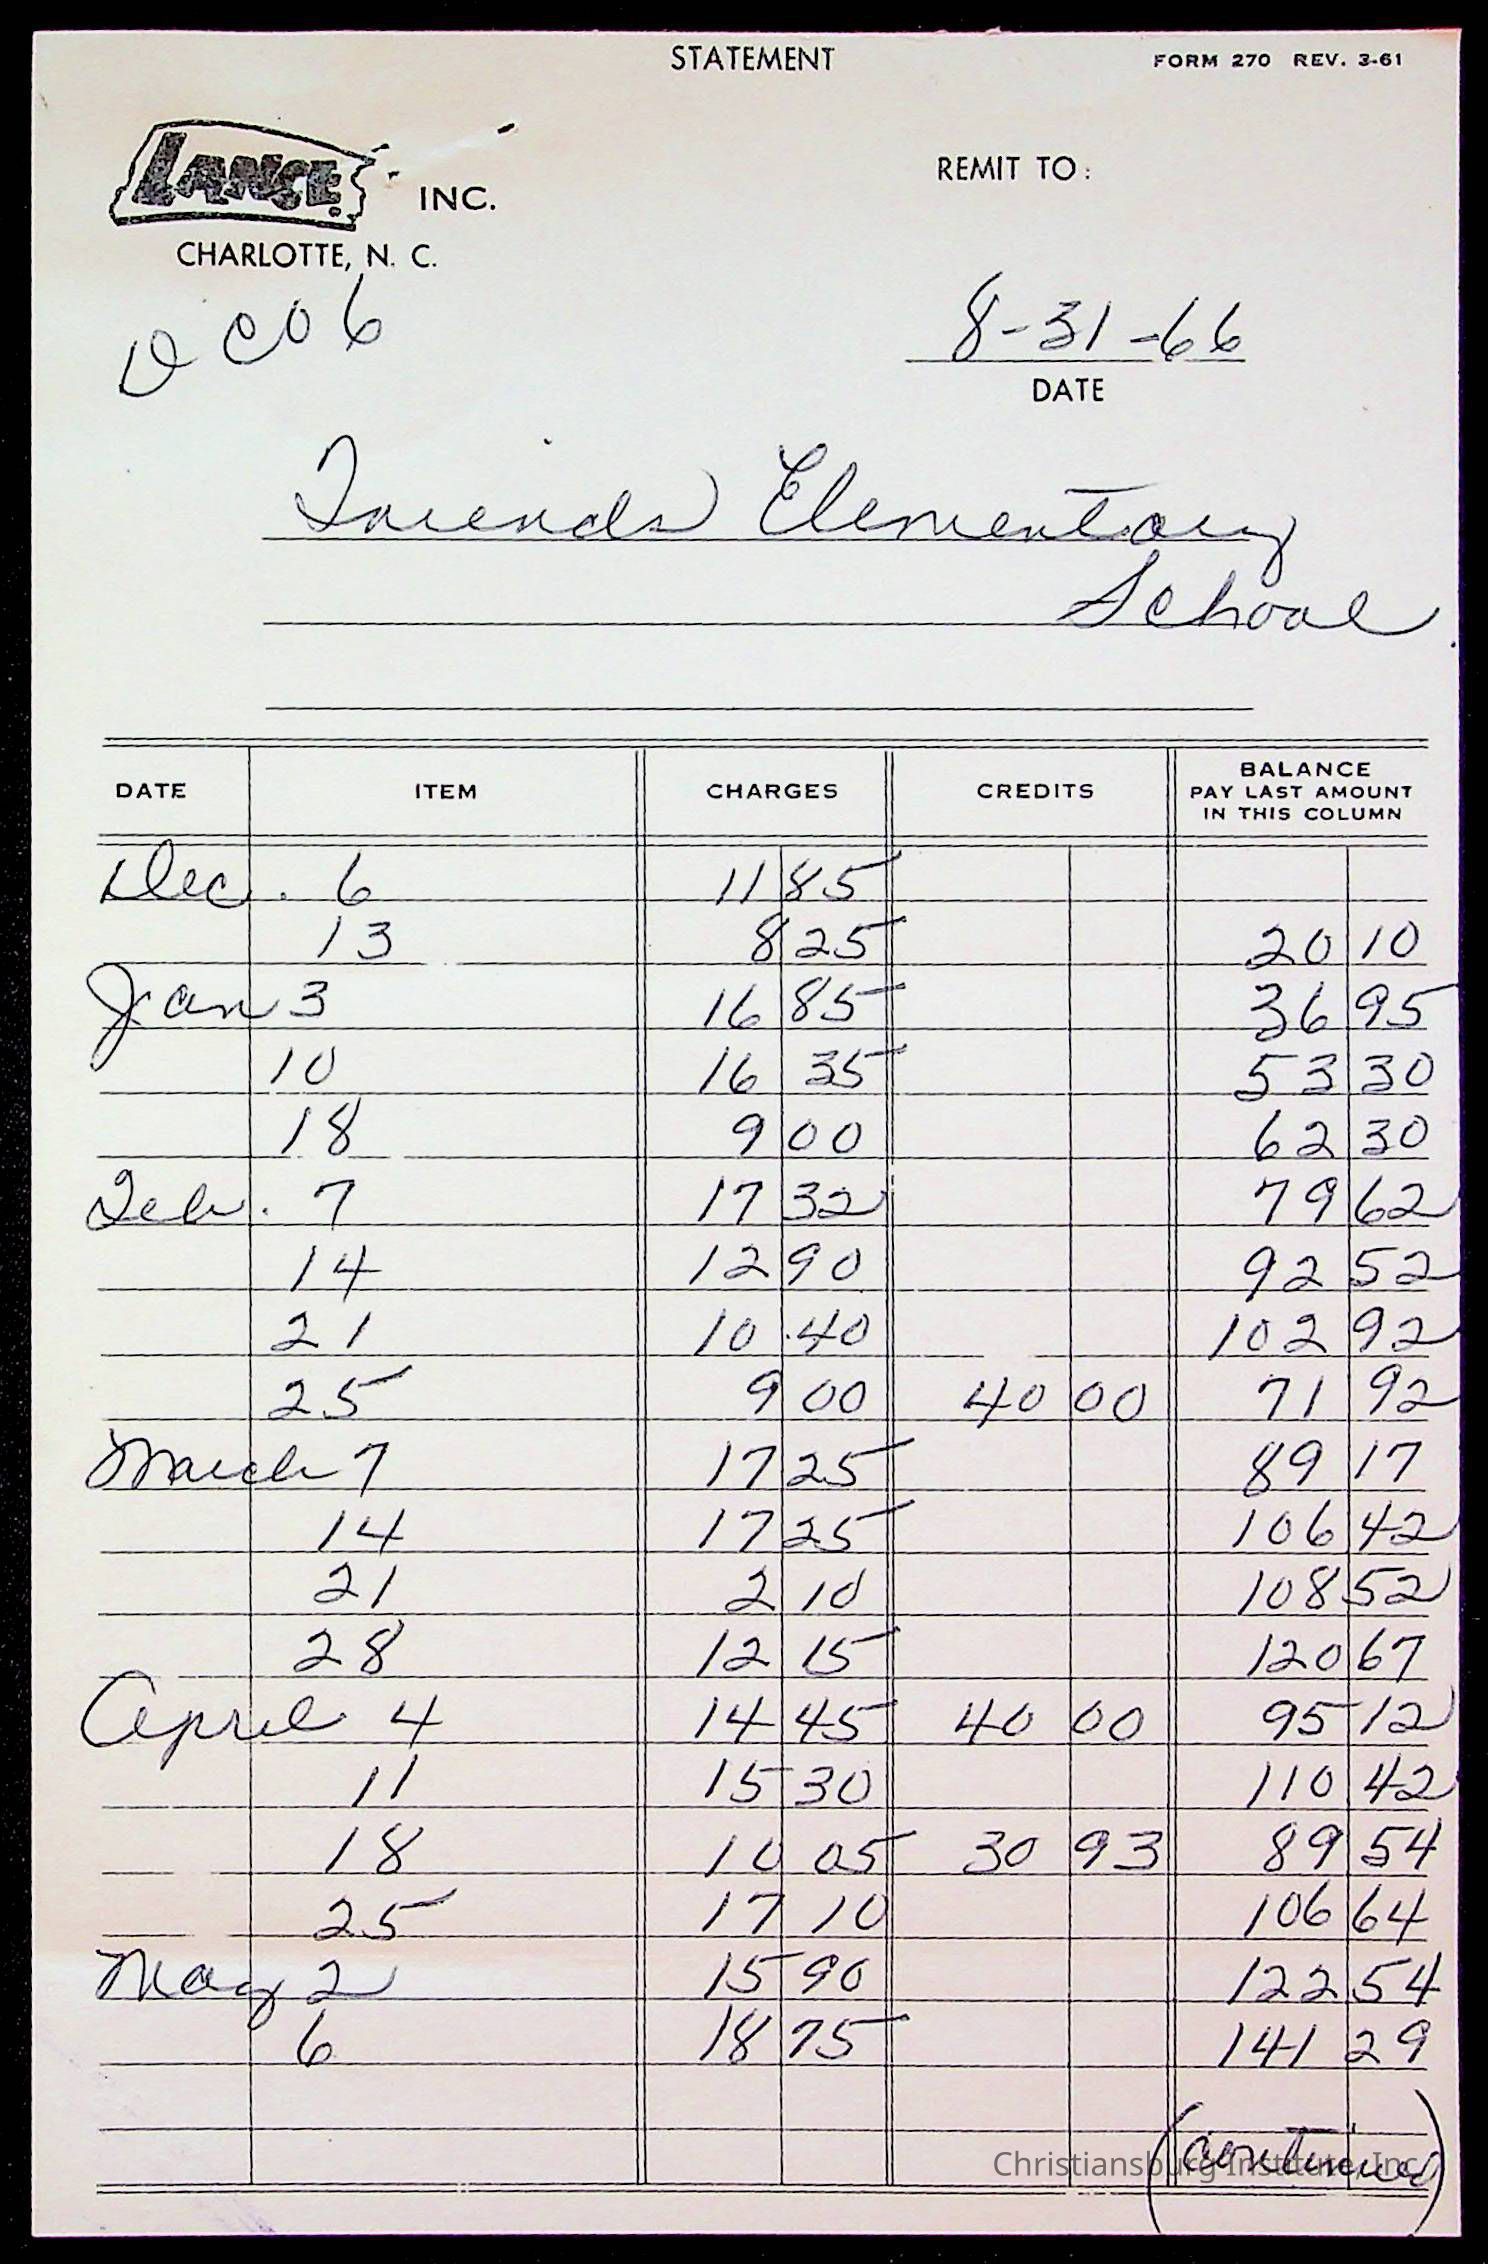 STATEMENT
FORM 270 REV. 3-61
LANCE INC.
REMIT TO:
CHARLOTTE, N. C.
8-31-66
DATE
Friends Elementary
School
DATE ITEM CHARGES CREDITS BALANCE
PAY LAST AMOUNT
IN THIS COLUMN
Dec. 6 11 85
13 8 25 20 10
Jan 3 16 85 36 95
10 16 35 53 30
18 9 00 62 30
Feb. 7 17 32 79 62
14 12 90 92 52
21 10.40 102 92
25 9 00 40 00 71 92
March 7 17 25 89 17
14 17 25 106 42
21 2 10 108 52
28 12 15 120 67
April 4 14 45 40 00 95 12
11 15 30 110 42
18 10 05 30 93 89 54
25 17 10 106 64
May 2 15 90 122 54
6 18 75 141 29
(continued)
Christiansburg Institute, Inc.